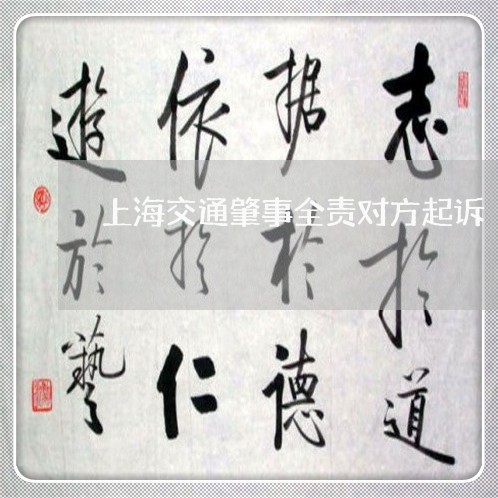 志於道
据於德
依於仁
遊於藝
上海交通肇事全责对方起诉